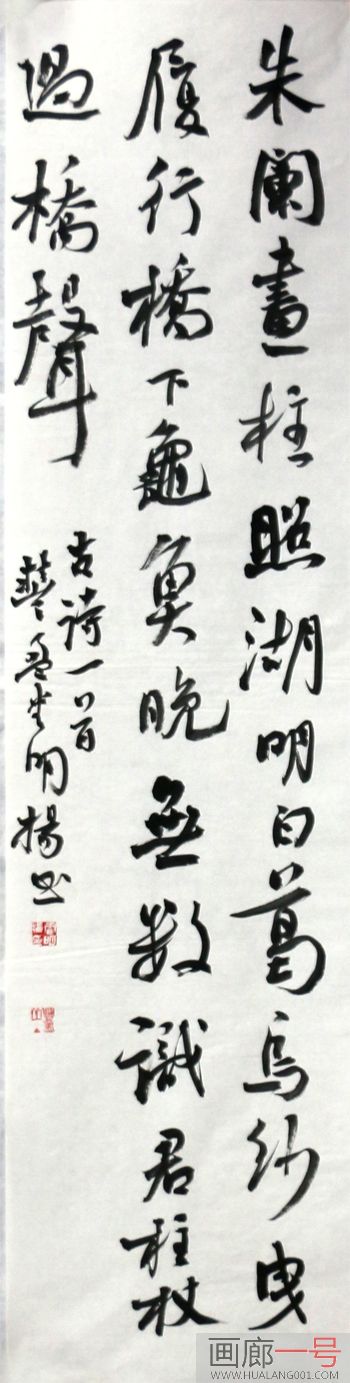 朱闌畫柱照湖明白葛烏紗曳
履行橋下龜魚晚無数識君柱杖
過橋聲
古詩一首
明揚书
画廊一号
WWW.HUALANG001.COM